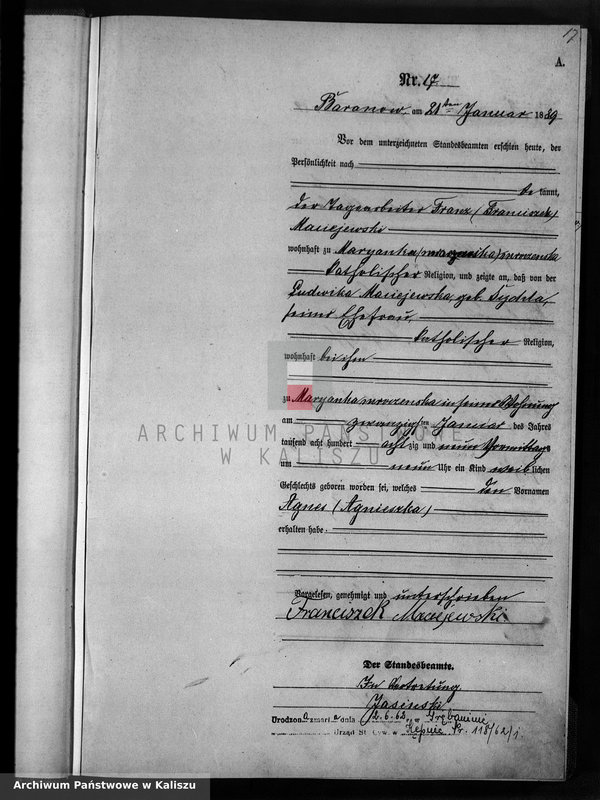 17
A.
Nr. 17
Baranow am 21ten Januar 1889
Vor dem unterzeichneten Standesbeamten erschien heute, der
Persönlichkeit nach
be kannt,
der Tagearbeiter Franz (Franciszek)
Maciejewski
wohnhaft zu Maryanka mroczenska
katholischer Religion, und zeigte an, daß von der
Ludwika Maciejewska, geb.
seiner Ehefrau,
katholischer Religion,
wohnhaft bei ihm
zu Maryanka mroczenska in seiner Wohnung
am zwanzigsten Januar des Jahres
tausend acht hundert acht zig und neun Vormittags
um neun Uhr ein Kind weib lichen
Geschlechts geboren worden sei, welches den Vornamen
Agnes (Agnieszka)
erhalten habe.
Vorgelesen, genehmigt und unterschrieben
Franciszek Maciejewski
Der Standesbeamte.
In Vertretung
Jasinski
Urodzona zmarła dnia 2.6.62 w Trębaninie
Urząd St. Cyw. w Kępnie Nr. 118/62/j.
ARCHIWUM PAŃSTWOWE
W KALISZU
Archiwum Państwowe w Kaliszu